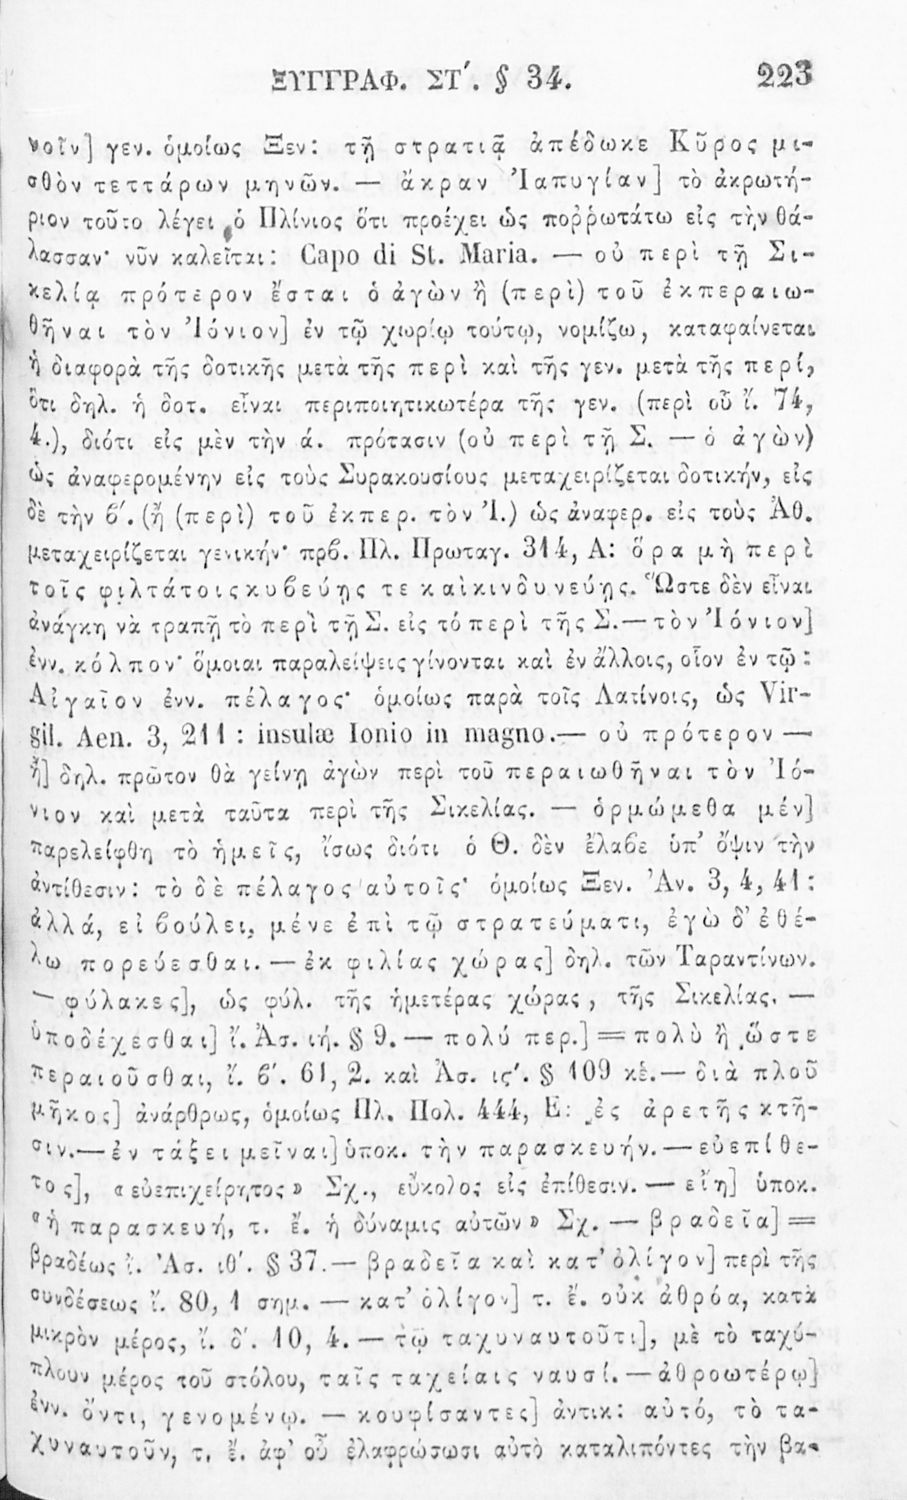 ΞΥΓΓΡΑΦ. ΣΤ΄. § 34. 223
νοῖν] γεν. ὁμοίως Ξεν: τῇ στρατιᾷ ἀπέδωκε Κῦρος μι-
σθὸν τεττάρων μηνῶν. — ἄκραν Ἰαπυγίαν] τὸ ἀκρωτή-
ριον τοῦτο λέγει ὁ Πλίνιος ὅτι προέχει ὡς ποῤῥωτάτω εἰς τὴν θά-
λασσαν· νῦν καλεῖται: Capo di St. Maria. — οὐ περὶ τῇ Σι-
κελίᾳ πρότερον ἔσται ὁ ἀγὼν ἢ (περὶ) τοῦ ἐκπεραιω-
θῆναι τὸν Ἰόνιον] ἐν τῷ χωρίῳ τούτῳ, νομίζω, καταφαίνεται
ἡ διαφορὰ τῆς δοτικῆς μετὰ τῆς περὶ καὶ τῆς γεν. μετὰ τῆς περί,
ὅτι δηλ. ἡ δοτ. εἶναι περιποιητικωτέρα τῆς γεν. (περὶ οὗ ἴ. 74,
4.), διότι εἰς μὲν τὴν ά. πρότασιν (οὐ περὶ τῇ Σ. — ὁ ἀγὼν)
ὡς ἀναφερομένην εἰς τοὺς Συρακουσίους μεταχειρίζεται δοτικήν, εἰς
δὲ τὴν ϐ΄. (ἢ (περὶ) τοῦ ἐκπερ. τὸν Ἰ.) ὡς ἀναφερ. εἰς τοὺς Ἀθ.
μεταχειρίζεται γενικήν· πρϐ. Πλ. Πρωταγ. 314, Α: ὅρα μὴ περὶ
τοῖς φιλτάτοις κυϐεύῃς τε καὶ κινδυνεύῃς. Ὥστε δὲν εἶναι
ἀνάγκη νὰ τραπῇ τὸ περὶ τῇ Σ. εἰς τό περὶ τῆς Σ.— τὸν Ἰόνιον]
ἐνν. κόλπον· ὅμοιαι παραλείψεις γίνονται καὶ ἐν ἄλλοις, οἷον ἐν τῷ:
Αἰγαῖον ἐνν. πέλαγος· ὁμοίως παρὰ τοῖς Λατίνοις, ὡς Vir-
gil. Aen. 3, 211 : insulæ Ionio in magno.— οὐ πρότερον —
ἢ] δηλ. πρῶτον θὰ γείνῃ ἀγὼν περὶ τοῦ περαιωθῆναι τὸν Ἰό-
νιον καὶ μετὰ ταῦτα περὶ τῆς Σικελίας. — ὁρμώμεθα μέν]
παρελείφθη τὸ ἡμεῖς, ἴσως διότι ὁ Θ. δὲν ἔλαϐε ὑπ' ὄψιν τὴν
ἀντίθεσιν: τὸ δὲ πέλαγος αὐτοῖς· ὁμοίως Ξεν. Ἀν. 3, 4, 41:
ἀλλά, εἰ ϐούλει, μένε ἐπὶ τῷ στρατεύματι, ἐγὼ δ' ἐθέ-
λω πορεύεσθαι. — ἐκ φιλίας χώρας] δηλ. τῶν Ταραντίνων.
— φύλακες], ὡς φύλ. τῆς ἡμετέρας χώρας, τῆς Σικελίας. —
ὑποδέχεσθαι] ἴ. Ἀσ. ιή. § 9. — πολύ περ.] = πολὺ ἢ ὥστε
περαιοῦσθαι, ἴ. ϐ΄. 61, 2. καὶ Ἀσ. ις΄. § 109 κἑ.— διὰ πλοῦ
μῆκος] ἀνάρθρως, ὁμοίως Πλ. Πολ. 444, Ε: ἐς ἀρετῆς κτῆ-
σιν.— ἐν τάξει μεῖναι] ὑποκ. τὴν παρασκευήν. — εὐεπίθε-
τος], «εὐεπιχείρητος» Σχ., εὔκολος εἰς ἐπίθεσιν. — εἴη] ὑποκ.
«ἡ παρασκευή, τ. ἔ. ἡ δύναμις αὐτῶν» Σχ. — βραδεῖα] =
βραδέως ἴ. Ἀσ. ιθ΄. § 37.— βραδεῖα καὶ κατ' ὀλίγον] περὶ τῆς
συνδέσεως ἴ. 80, 1 σημ. — κατ' ὀλίγον] τ. ἔ. οὐκ ἀθρόα, κατὰ
μικρὸν μέρος, ἴ. δ΄. 10, 4. — τῷ ταχυναυτοῦτι], μὲ τὸ ταχύ-
πλουν μέρος τοῦ στόλου, ταῖς ταχείαις ναυσί. — ἀθροωτέρῳ]
ἐνν. ὄντι, γενομένῳ. — κουφίσαντες] ἀντικ: αὐτό, τὸ τα-
χυναυτοῦν, τ. ἔ. ἀφ' οὗ ἐλαφρώσωσι αὐτὸ καταλιπόντες τὴν βα-